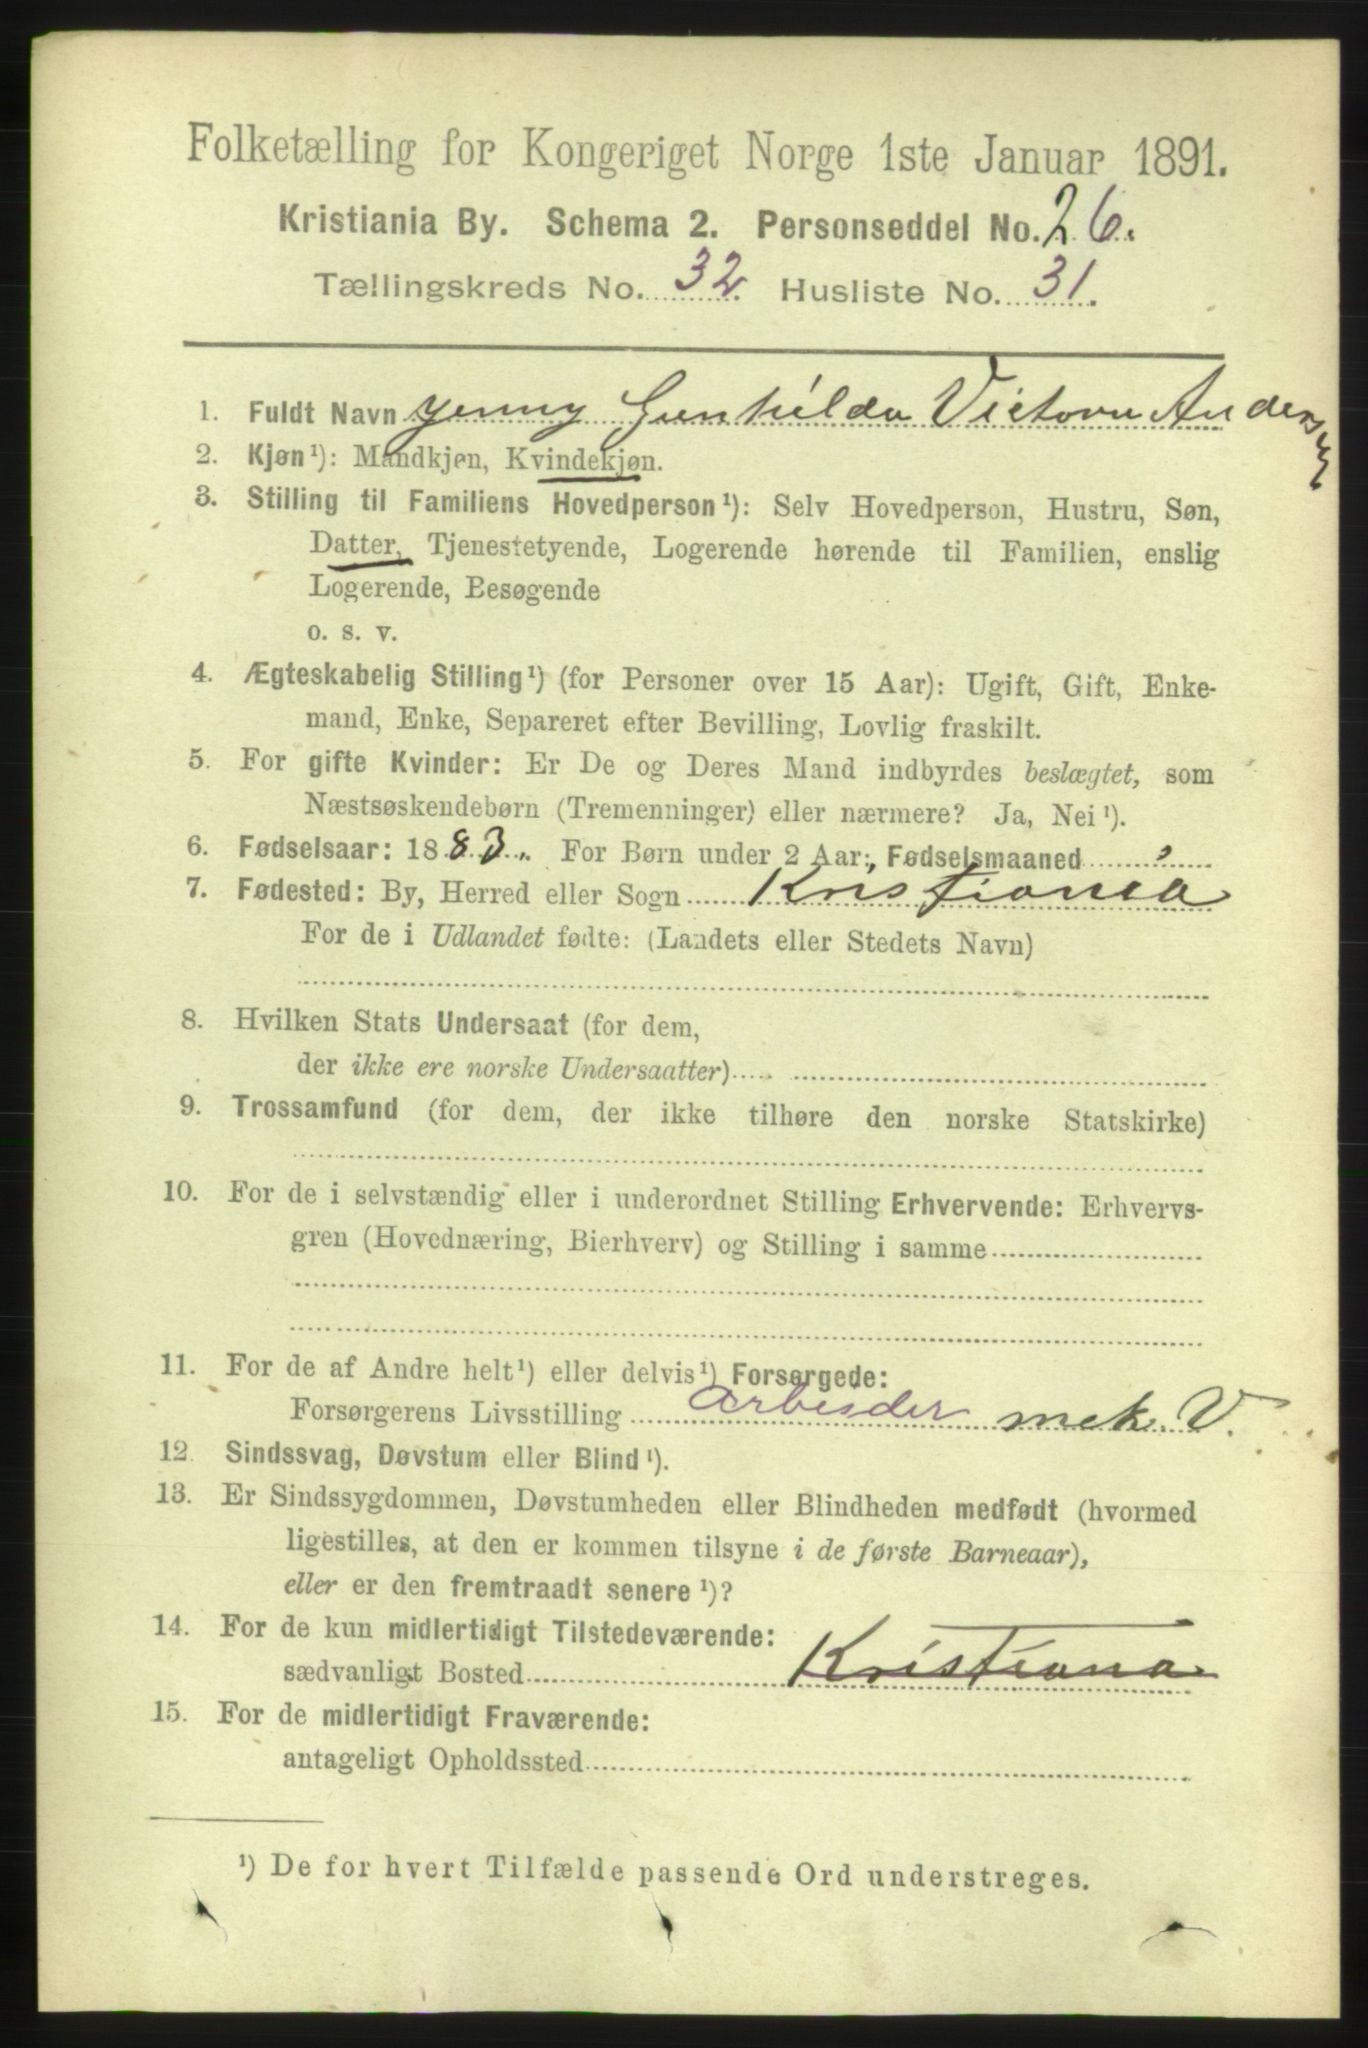 Folketælling for Kongeriget Norge 1ste Januar 1891.
Kristiania By. Schema 2. Personseddel No. 26.
Tællingskreds No. 32. Husliste No. 31.
1. Fuldt Navn Jenny Gunhilda Victoria Andersen
2. Kjøn¹): Mandkjøn, Kvindekjøn.
3. Stilling til Familiens Hovedperson¹): Selv Hovedperson, Hustru, Søn,
Datter, Tjenestetyende, Logerende hørende til Familien, enslig
Logerende, Besøgende
o. s. v.
4. Ægteskabelig Stilling¹) (for Personer over 15 Aar): Ugift, Gift, Enke-
mand, Enke, Separeret efter Bevilling, Lovlig fraskilt.
5. For gifte Kvinder: Er De og Deres Mand indbyrdes beslægtet, som
Næstsøskendebørn (Tremenninger) eller nærmere? Ja, Nei¹).
6. Fødselsaar: 1883. For Børn under 2 Aar: Fødselsmaaned
7. Fødested: By, Herred eller Sogn Kristiania
For de i Udlandet fødte: (Landets eller Stedets Navn)
8. Hvilken Stats Undersaat (for dem,
der ikke ere norske Undersaatter)
9. Trossamfund (for dem, der ikke tilhøre den norske Statskirke)
10. For de i selvstændig eller i underordnet Stilling Erhvervende: Erhvervs-
gren (Hovednæring, Bierhverv) og Stilling i samme
11. For de af Andre helt¹) eller delvis¹) Forsørgede:
Forsørgerens Livsstilling arbeider mek. V.
12. Sindssvag, Døvstum eller Blind¹).
13. Er Sindssygdommen, Døvstumheden eller Blindheden medfødt (hvormed
ligestilles, at den er kommen tilsyne i de første Barneaar),
eller er den fremtraadt senere¹)?
14. For de kun midlertidigt Tilstedeværende:
sædvanligt Bosted Kristiana
15. For de midlertidigt Fraværende:
antageligt Opholdssted
¹) De for hvert Tilfælde passende Ord understreges.